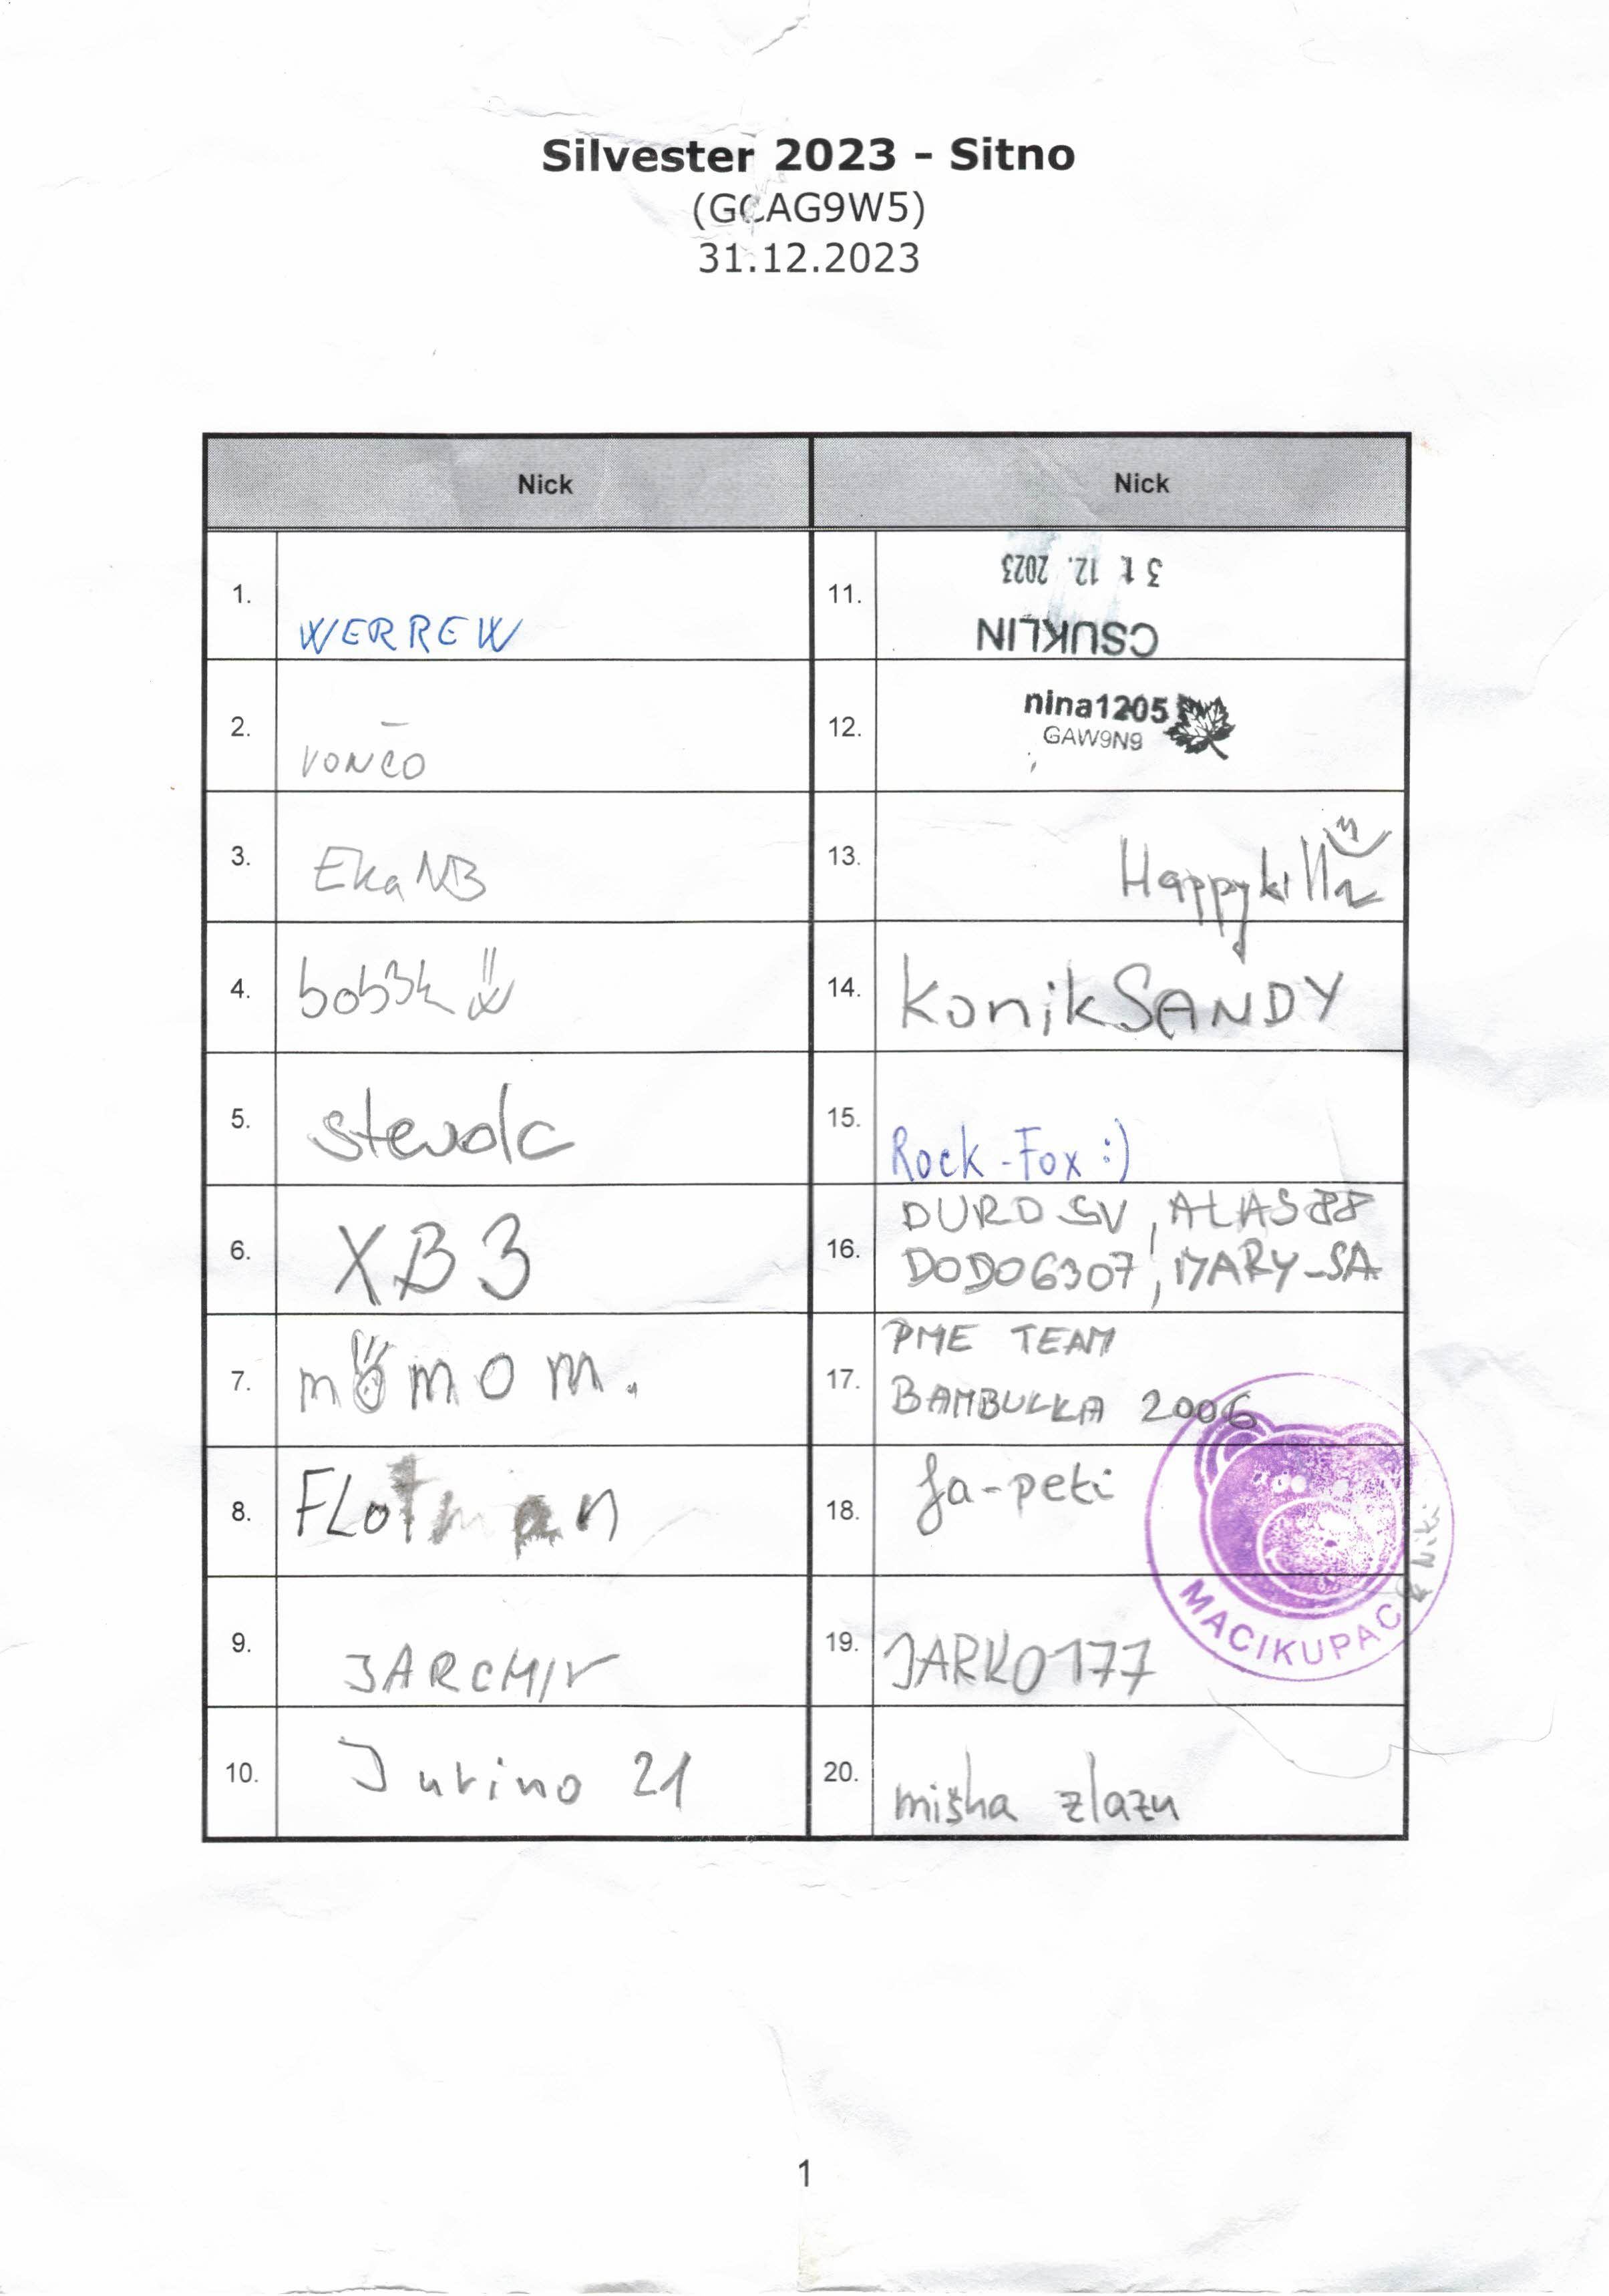 Silvester 2023 - Sitno
(GCAG9W5)
31.12.2023
Nick
1. WERREW
2. VONČO
3. EkaNB
4.
5. stevolc
6. XB3
7. momom.
8. FLotman
9. JARCMIR
10. Jurino 21
Nick
11. 31. 12. 2023
CSUKLIN
12. nina1205
GAW9N9
13. Happykilla
14. KonikSANDY
15. Rock-Fox :)
16. DURO SV, ALAS88
DODO6307, MARY-SA
17. PME TEAM
BAMBULKA 2006
18. Ja-peti
MACIKUPAC
& Niki
19. JARKO177
20. miška zlazu
1